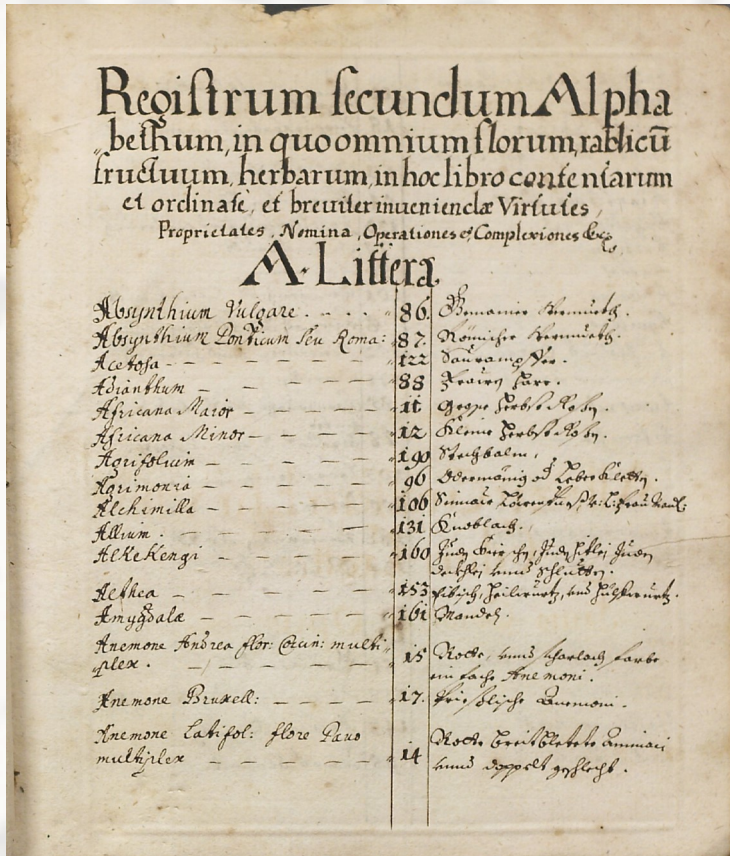 Registrum secundum Alpha
bethum, in quo omnium florum, radicū
fructuum, herbarum, in hoc libro contentarum
et ordinatè, et breviter inveniendæ Virtutes,
Proprietates, Nomina, Operationes et Complexiones &c
A. Littera
Absynthium Vulgare . . . . 86. Gemainer Wermueth.
Absynthium Ponticum seu Roma: 87. Römischer Wermueth.
Acetosa - - - - - 122 Saurampffer.
Adianthum - - - - 88 Frawen Harr.
Africana Maior - - - - 11 Grosse Herbst Rosen.
Africana Minor - - - - 12 Kleine Herbst Rosen.
Agrifolium - - - - 190 Stechbalm,
Agrimonia - - - - 96 Odermänig od Leber Kletten.
Alchimilla - - - - 106 Sinnaw
Allium . - - - - 131 Knoblach.
Alkekengi - - - - 160 Juden Kirschen, Juden
Schlutten.
Althea - - - - 153 Eibisch, Heilwurtz, unnd
Amygdalæ - - - - 161 Mandel.
Anemone Andrea flor: Coccin: multi
plex. - - - - 15 Rotte, unnd scharlach farbe
einfache Anemoni.
Anemone Bruxell: - - - - 17. Anemoni.
Anemone Latifol: flore Pavo
multiplex - - - - 14 Rotte breitbletete
unnd doppelt geschlecht.